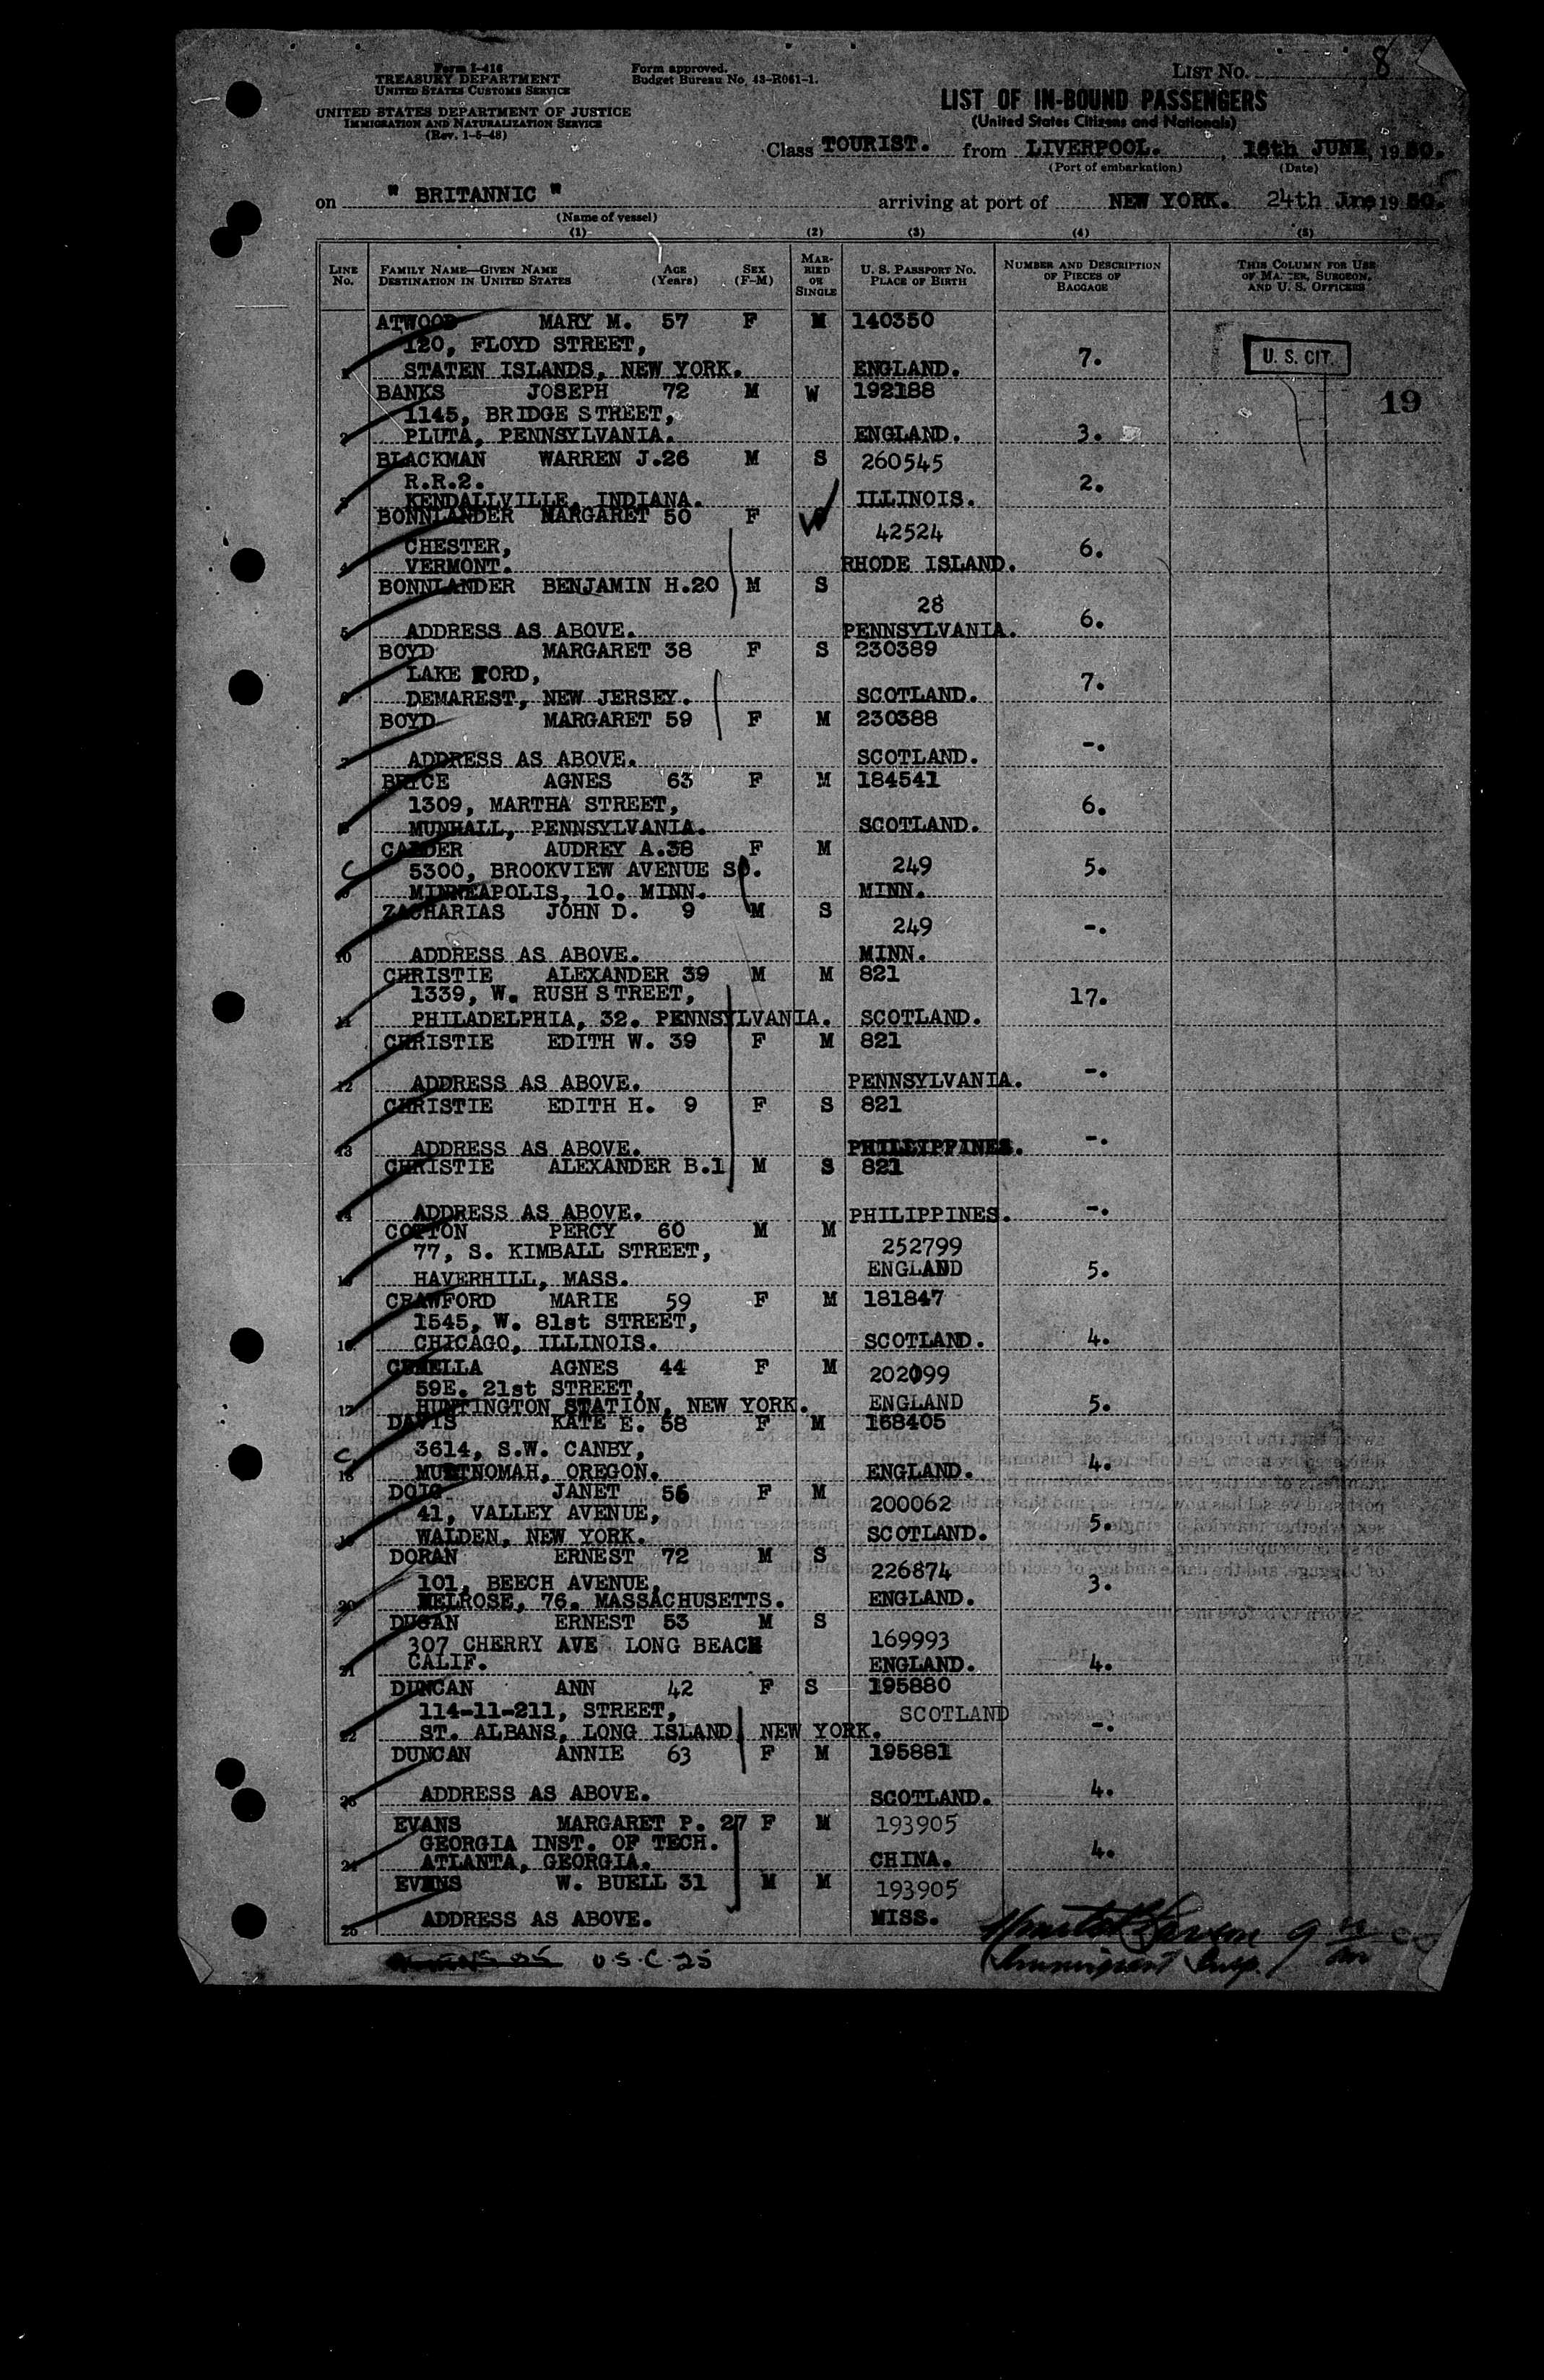 Form I-416
TREASURY DEPARTMENT
UNITED STATES CUSTOMS SERVICE
UNITED STATES DEPARTMENT OF JUSTICE
IMMIGRATION AND NATURALIZATION SERVICE
(Rev. 1-5-48)
Form approved.
Budget Bureau No. 43-R061-1.
LIST NO. 8
LIST OF IN-BOUND PASSENGERS
(United States Citizens and Nationals)
Class TOURIST. from LIVERPOOL. , 16th JUNE, 1950.
(Port of embarkation) (Date)
on " BRITANNIC " arriving at port of NEW YORK. 24th June 1950.
(Name of vessel)
(1) (2) (3) (4) (5)
LINE NO.
FAMILY NAME—GIVEN NAME
DESTINATION IN UNITED STATES
AGE (Years)
SEX (F-M)
MARRIED OR SINGLE
U. S. PASSPORT NO.
PLACE OF BIRTH
NUMBER AND DESCRIPTION OF PIECES OF BAGGAGE
THIS COLUMN FOR USE OF MASTER, SURGEON, AND U. S. OFFICERS
ATWOOD MARY M. 57 F M 140350
120, FLOYD STREET,
1 STATEN ISLANDS, NEW YORK. ENGLAND. 7. U. S. CIT.
BANKS JOSEPH 72 M W 192188 19
1145, BRIDGE STREET,
2 PLUTA, PENNSYLVANIA. ENGLAND. 3.
BLACKMAN WARREN J. 26 M S 260545
R.R.2.
3 KENDALLVILLE, INDIANA. ILLINOIS. 2.
BONNLANDER MARGARET 50 F W 42524
CHESTER,
4 VERMONT. RHODE ISLAND. 6.
BONNLANDER BENJAMIN H. 20 M S 28
5 ADDRESS AS ABOVE. PENNSYLVANIA. 6.
BOYD MARGARET 38 F S 230389
LAKE FORD,
6 DEMAREST, NEW JERSEY. SCOTLAND. 7.
BOYD MARGARET 59 F M 230388
7 ADDRESS AS ABOVE. SCOTLAND. -.
BRYCE AGNES 63 F M 184541
1309, MARTHA STREET,
8 MUNHALL, PENNSYLVANIA. SCOTLAND. 6.
CALDER AUDREY A. 38 F M 249
C 5300, BROOKVIEW AVENUE SO.
9 MINNEAPOLIS, 10. MINN. MINN. 5.
ZACHARIAS JOHN D. 9 M S 249
10 ADDRESS AS ABOVE. MINN. -.
CHRISTIE ALEXANDER 39 M M 821
1339, W. RUSH STREET,
11 PHILADELPHIA, 32. PENNSYLVANIA. SCOTLAND. 17.
CHRISTIE EDITH W. 39 F M 821
12 ADDRESS AS ABOVE. PENNSYLVANIA. -.
CHRISTIE EDITH H. 9 F S 821
13 ADDRESS AS ABOVE. PHILLIPPINES. -.
CHRISTIE ALEXANDER B. 1 M S 821
14 ADDRESS AS ABOVE. PHILIPPINES. -.
COTTON PERCY 60 M M 252799
77, S. KIMBALL STREET,
15 HAVERHILL, MASS. ENGLAND 5.
CRAWFORD MARIE 59 F M 181847
1545, W. 81st STREET,
16 CHICAGO, ILLINOIS. SCOTLAND. 4.
AGNES 44 F M 202099
59E. 21st STREET,
17 HUNTINGTON STATION, NEW YORK. ENGLAND 5.
DAVIS KATE E. 58 F M 168405
C 3614, S.W. CANBY,
18 MULTNOMAH, OREGON. ENGLAND. 4.
DOIG JANET 56 F M 200062
41, VALLEY AVENUE,
19 WALDEN, NEW YORK. SCOTLAND. 5.
DORAN ERNEST 72 M S 226874
101, BEECH AVENUE,
20 MELROSE, 76. MASSACHUSETTS. ENGLAND. 3.
DUGAN ERNEST 53 M S 169993
307 CHERRY AVE LONG BEACH
21 CALIF. ENGLAND. 4.
DUNCAN ANN 42 F S 195880
114-11-211, STREET,
22 ST. ALBANS, LONG ISLAND, NEW YORK. SCOTLAND -.
DUNCAN ANNIE 63 F M 195881
23 ADDRESS AS ABOVE. SCOTLAND. 4.
EVANS MARGARET P. 27 F M 193905
GEORGIA INST. OF TECH.
24 ATLANTA, GEORGIA. CHINA. 4.
EVANS W. BUELL 31 M M 193905
25 ADDRESS AS ABOVE. MISS.
U.S.C. 25
Immigrant Insp.